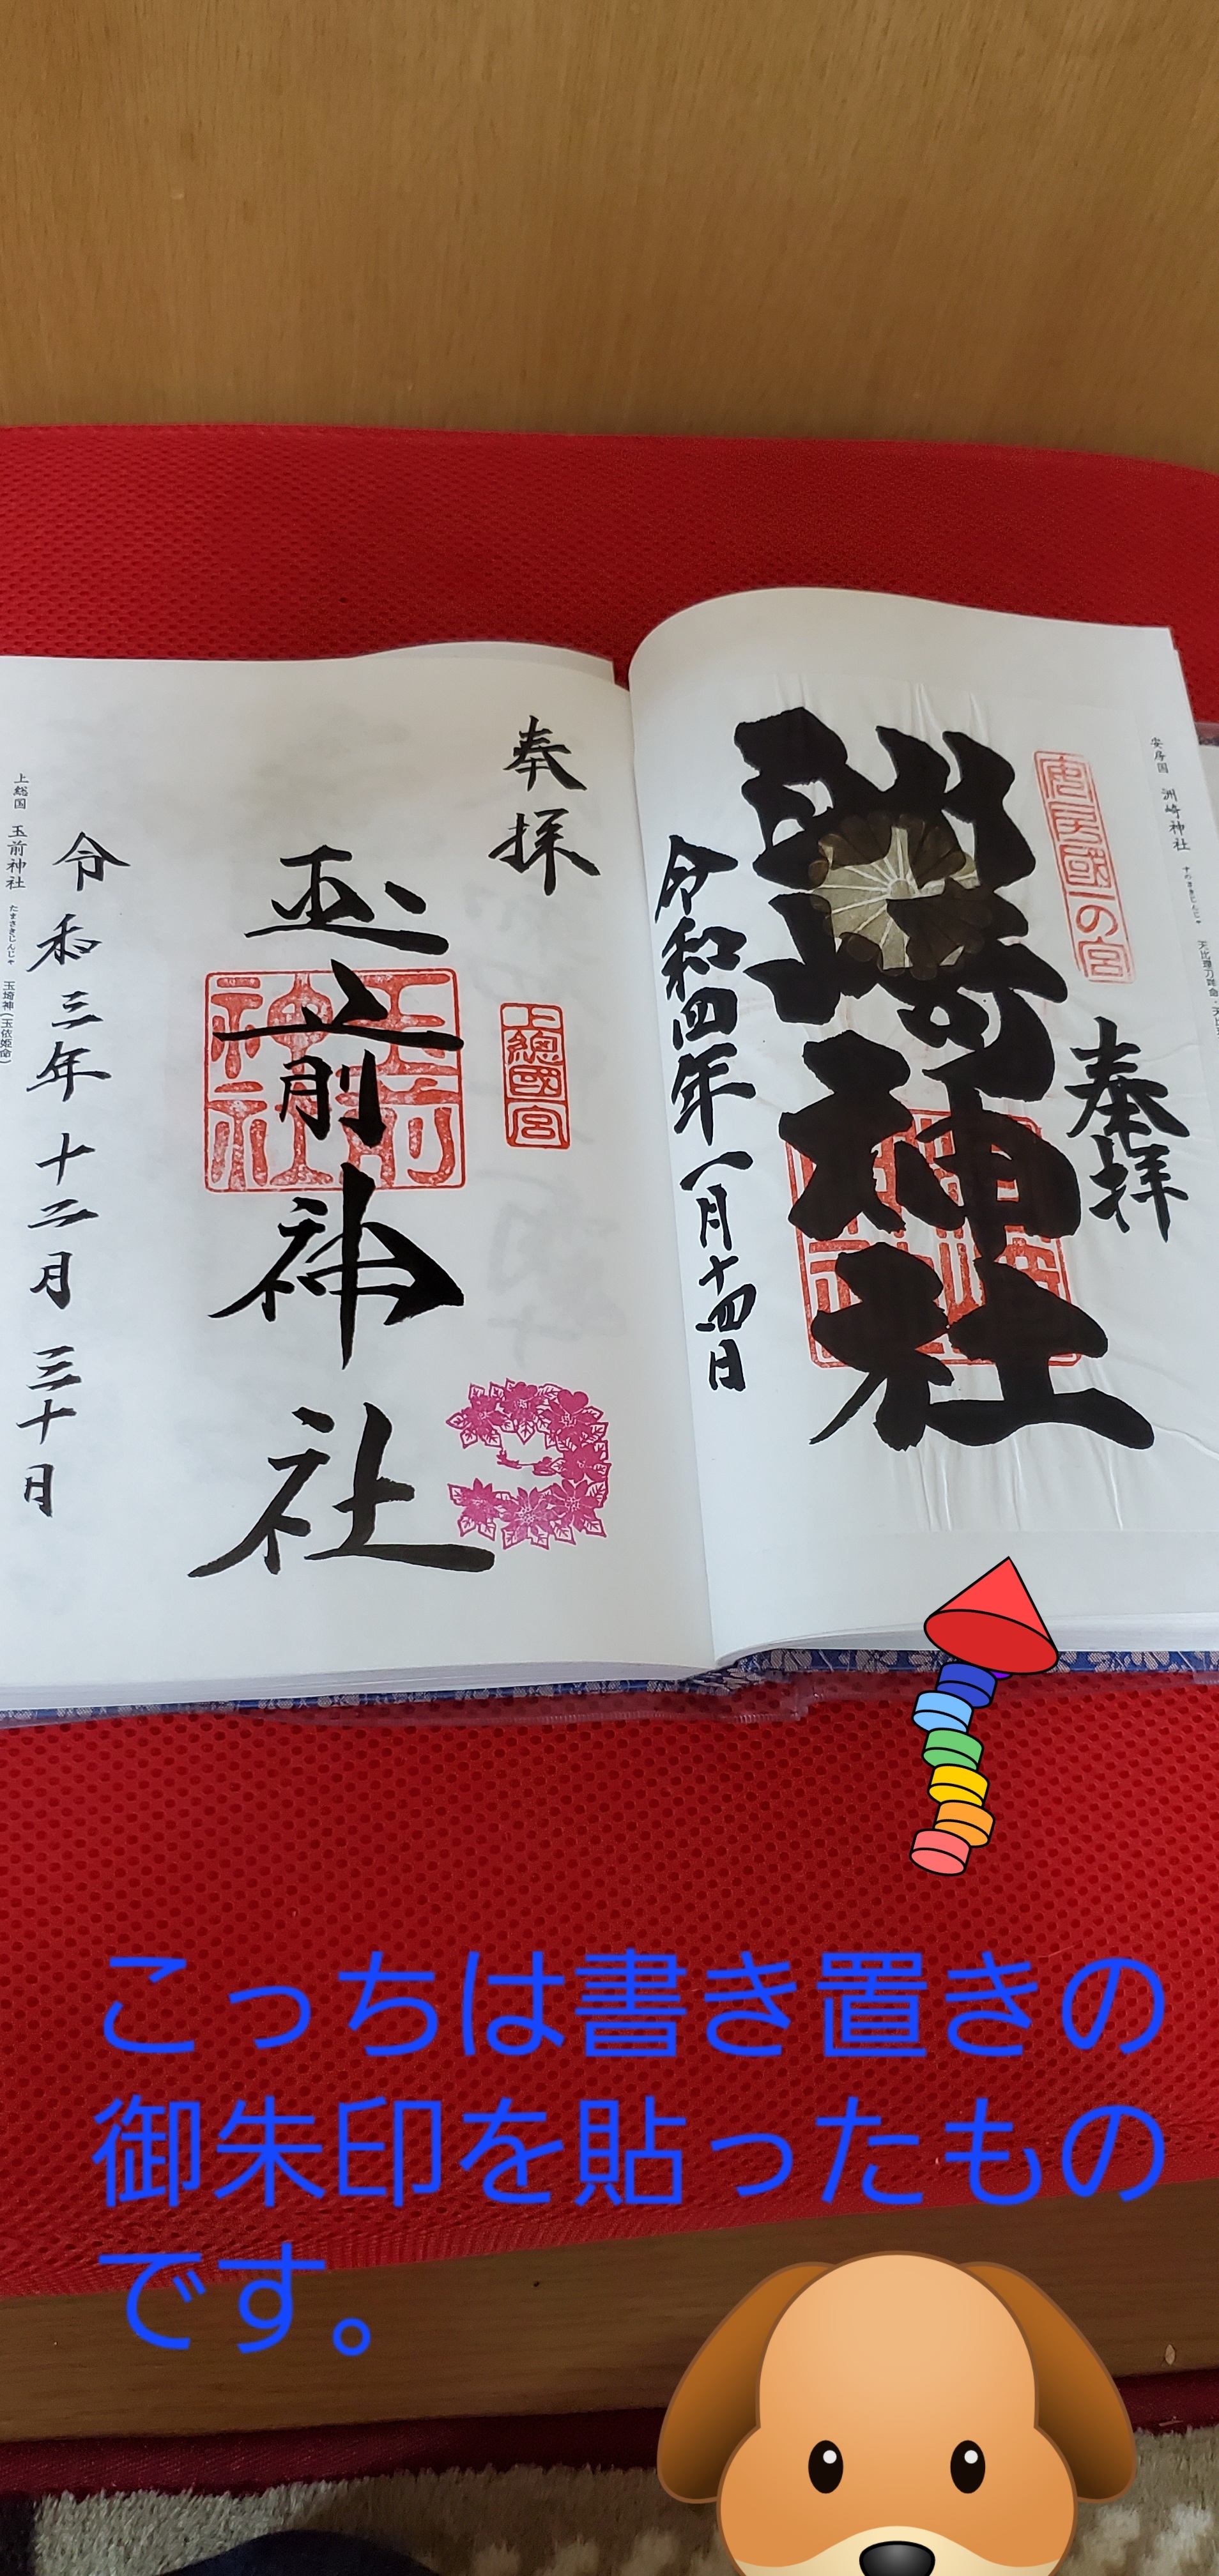 安房国 洲崎神社 すのさきじんじゃ
安房國一の宮
奉拝
洲崎神社
令和四年一月十四日
奉拝
上總國一宮
玉前神社
玉前神社
令和三年十二月三十日
上総国 玉前神社 たまさきじんじゃ 玉埼神(玉依姫命)
こっちは書き置きの
御朱印を貼ったもの
です。